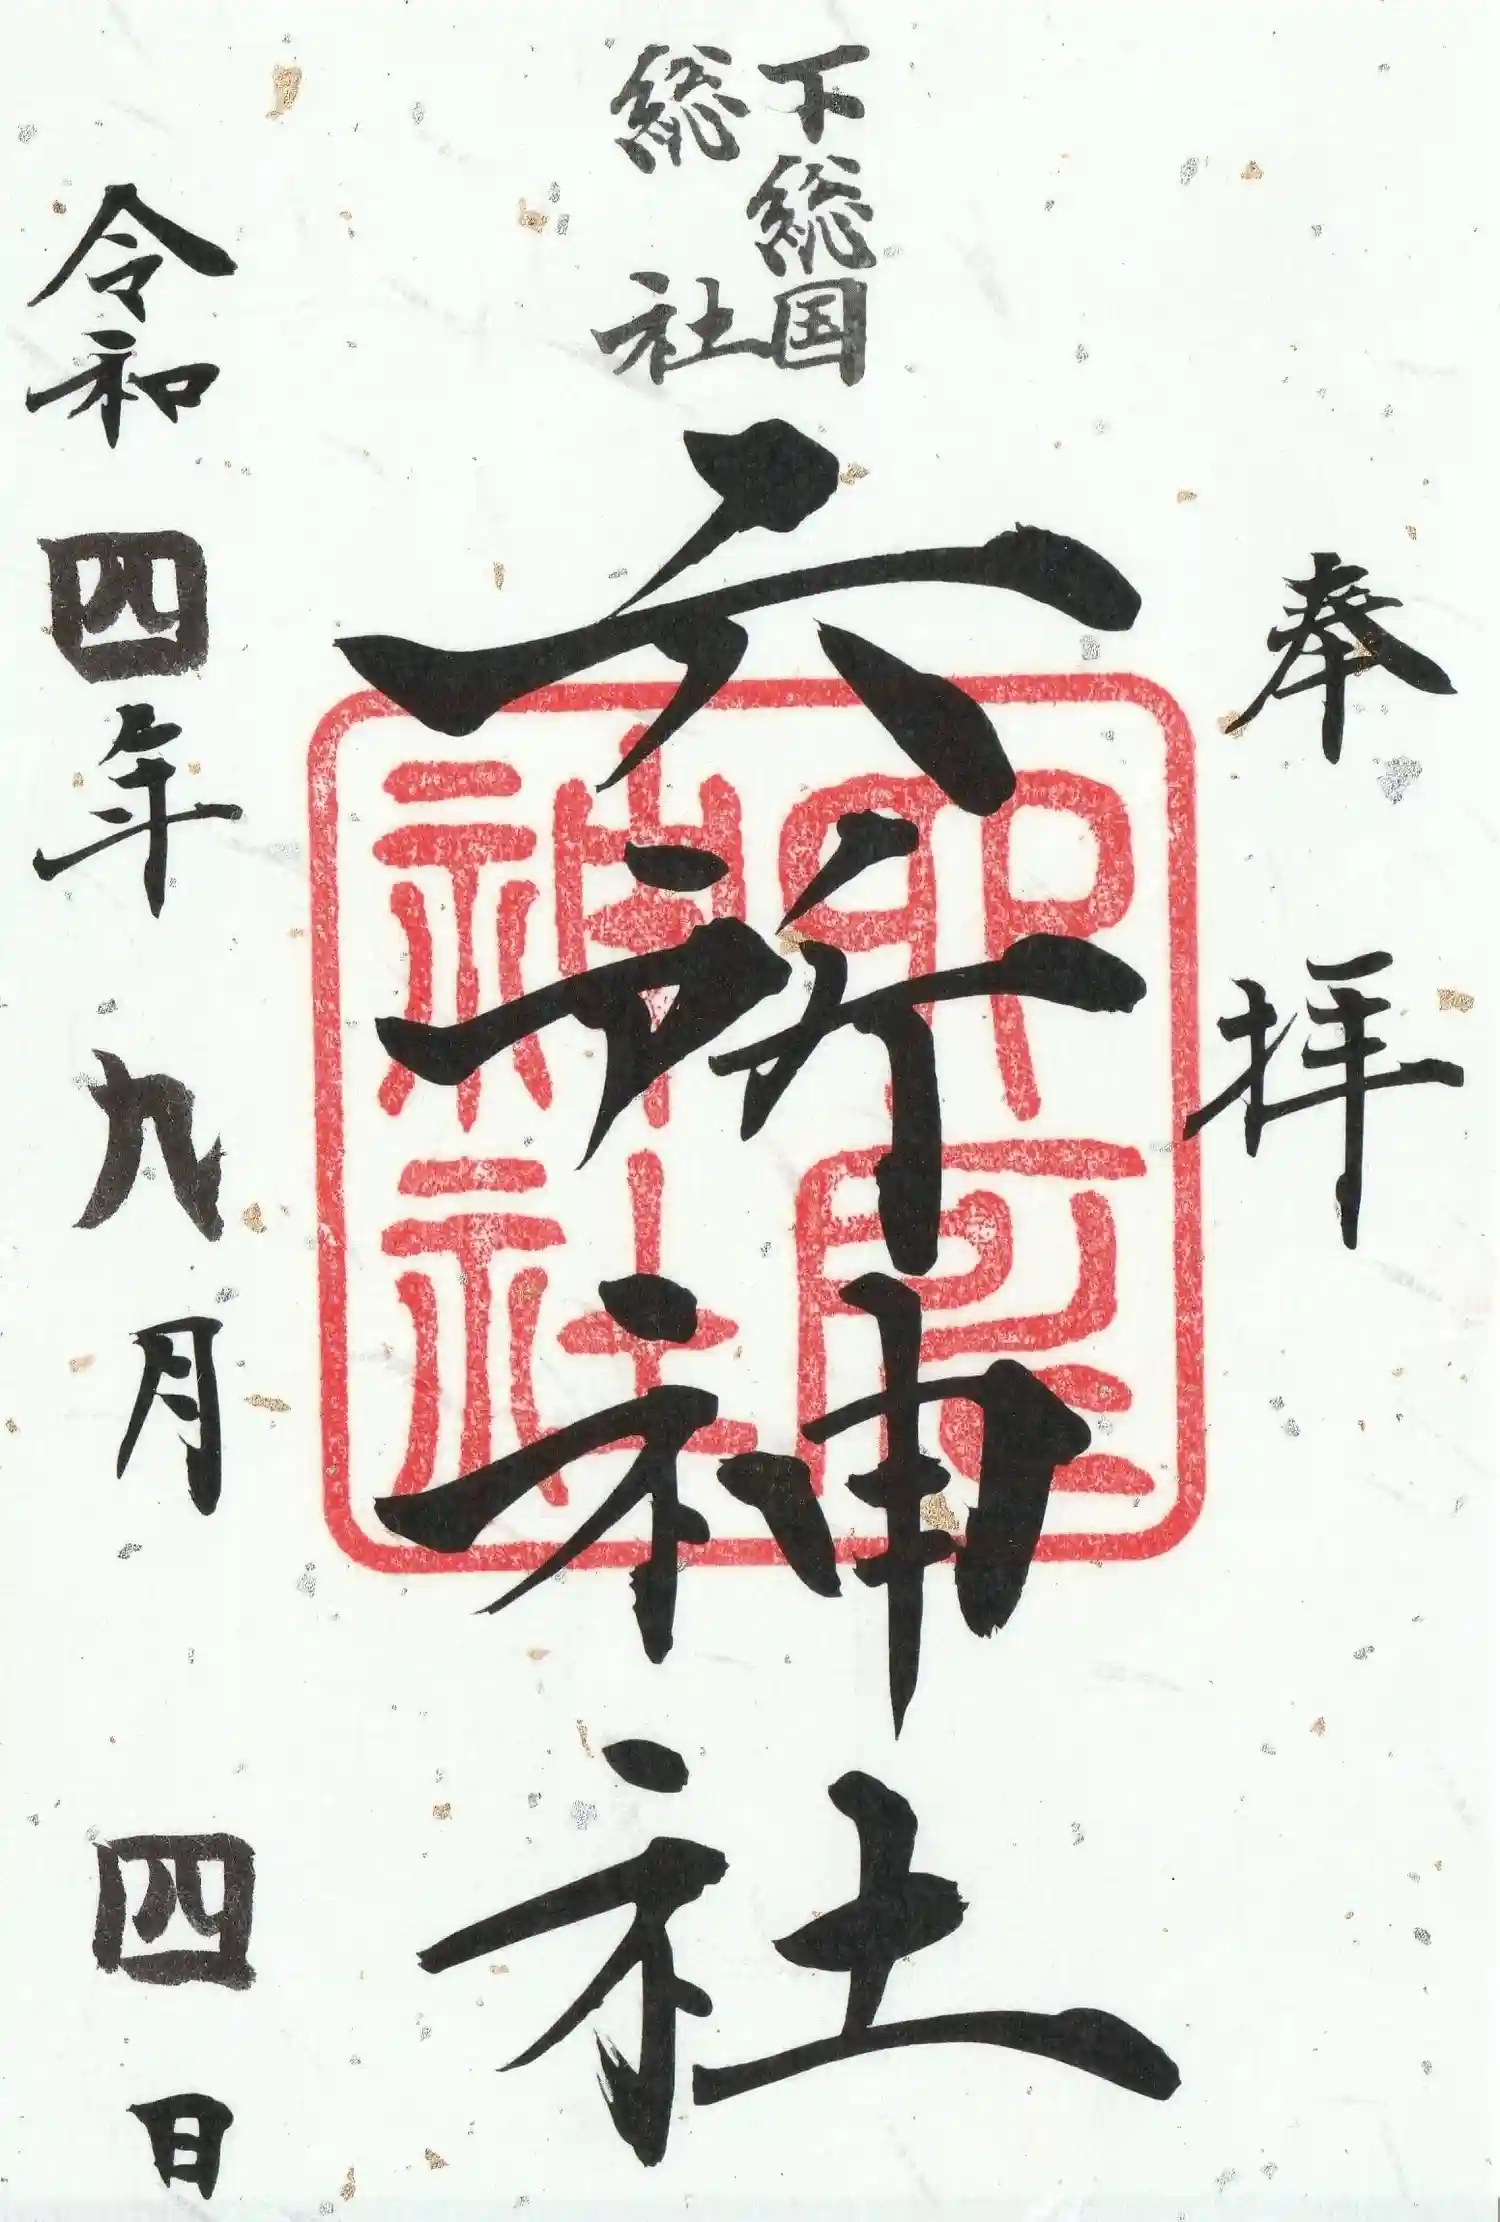 奉拝
下総国
総社
六所神社
神社
令和四年九月四日